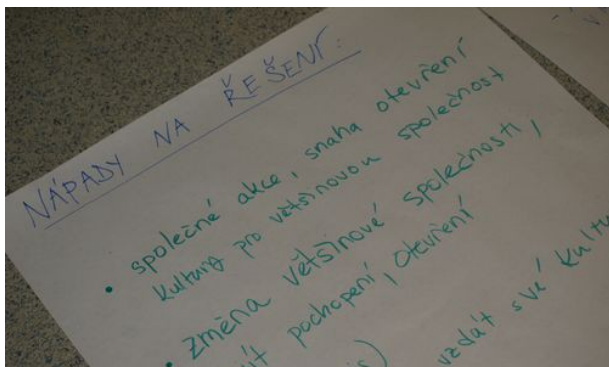 NÁPADY NA ŘEŠENÍ:
• společné akce, snaha otevření
kultury pro většinovou společnost
• změna většinové společnosti,
pochopení, otevření
vzdát své